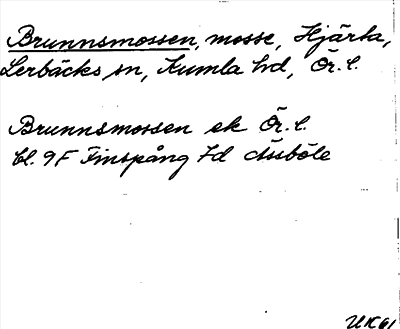 Brunnsmossen, mosse, Hjärta,
Lerbäcks sn, Kumla hd, Ör. l.
Brunnsmossen ek Ör. l.
bl. 9F Finspång 7d Åsböle